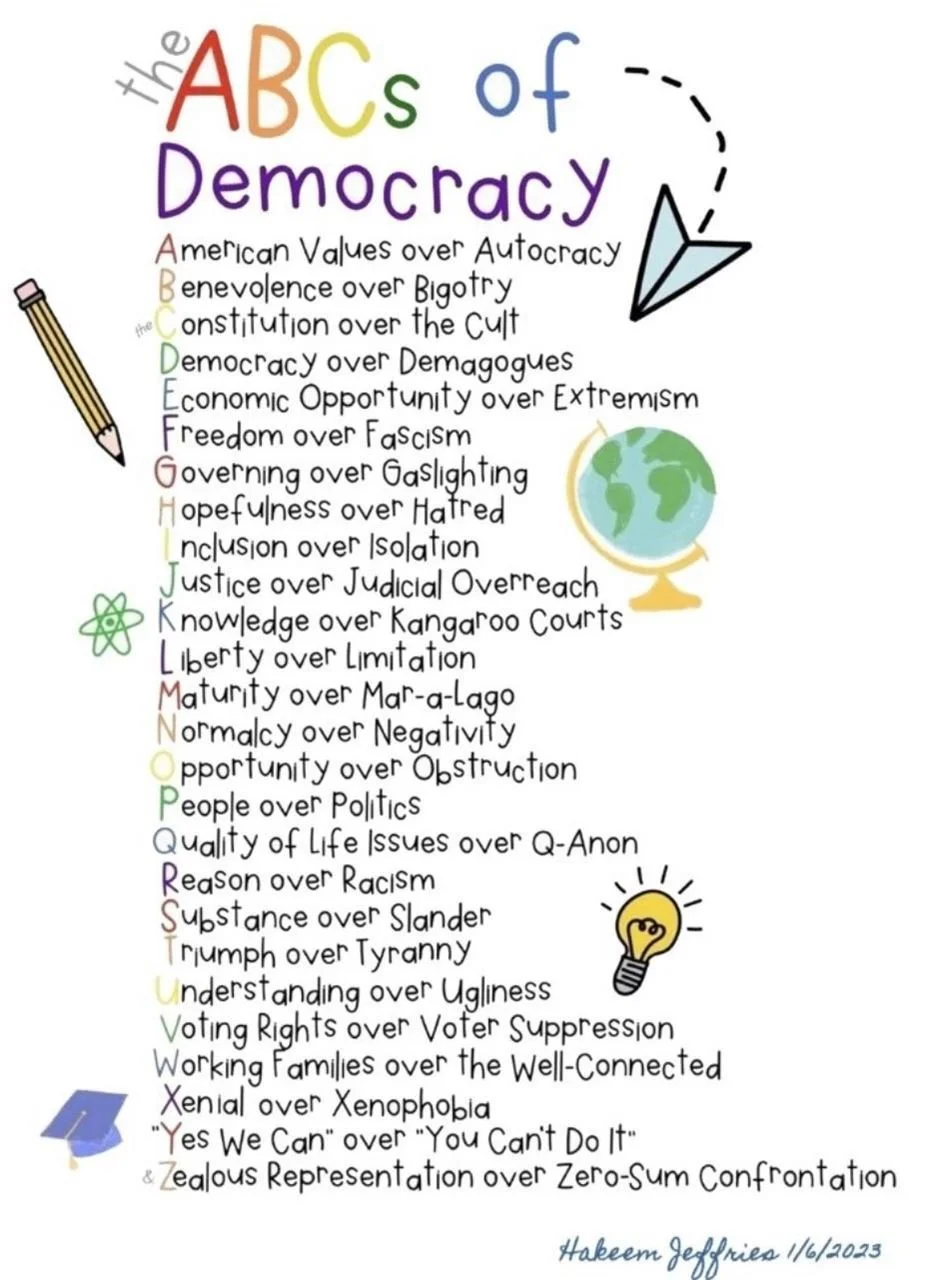 the ABCs of
Democracy
American Values over Autocracy
Benevolence over Bigotry
the Constitution over the Cult
Democracy over Demagogues
Economic Opportunity over Extremism
Freedom over Fascism
Governing over Gaslighting
Hopefulness over Hatred
Inclusion over Isolation
Justice over Judicial Overreach
Knowledge over Kangaroo Courts
Liberty over Limitation
Maturity over Mar-a-Lago
Normalcy over Negativity
Opportunity over Obstruction
People over Politics
Quality of Life Issues over Q-Anon
Reason over Racism
Substance over Slander
Triumph over Tyranny
Understanding over Ugliness
Voting Rights over Voter Suppression
Working Families over the Well-Connected
Xenial over Xenophobia
"Yes We Can" over "You Can't Do It"
& Zealous Representation over Zero-Sum Confrontation
Hakeem Jeffries 1/6/2023